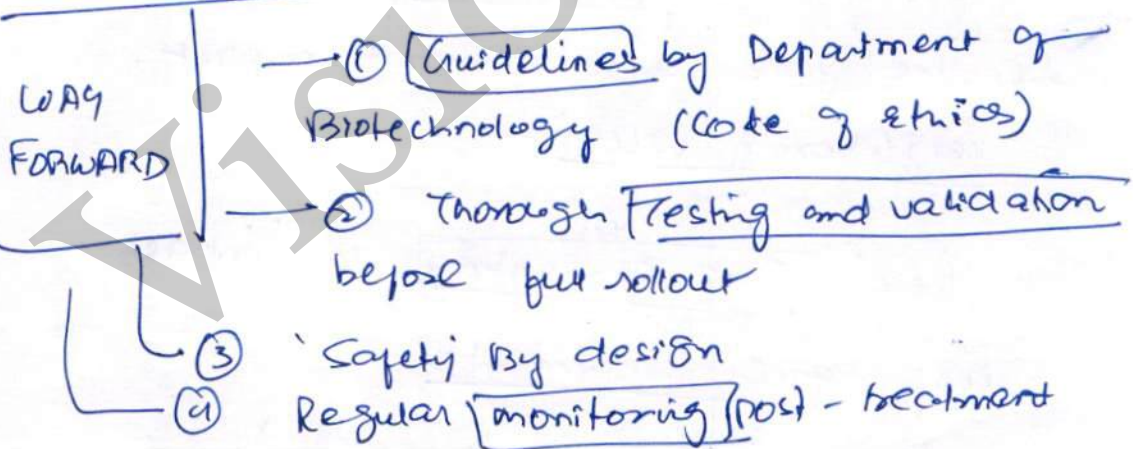 WAY
FORWARD
① Guidelines by Department of
Biotechnology (Code of ethics)
② Thorough Testing and validation
before full rollout
③ 'Safety By design
④ Regular monitoring post - treatment
Visio